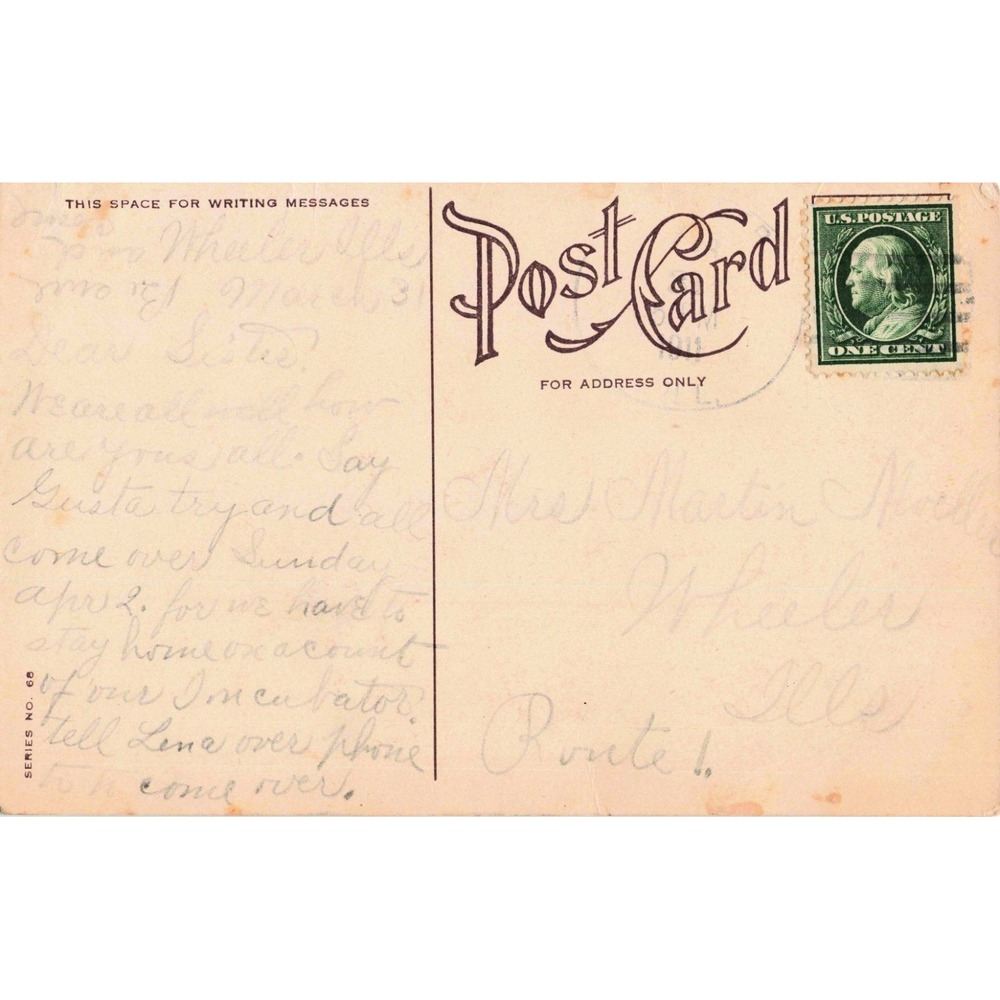 THIS SPACE FOR WRITING MESSAGES
Wheeler Ills
March 31
Dear Sister
We are all well how
are yous all. Say
Gusta try and all
come over Sunday
apr 2. for we have to
stay home on acount
of our Incubator.
tell Lena over phone
to come over.
SERIES NO. 68
Post Card
FOR ADDRESS ONLY
M
1911
ILL.
U.S. POSTAGE
ONE CENT
Mrs Martin
Wheeler
Ills
Route 1.